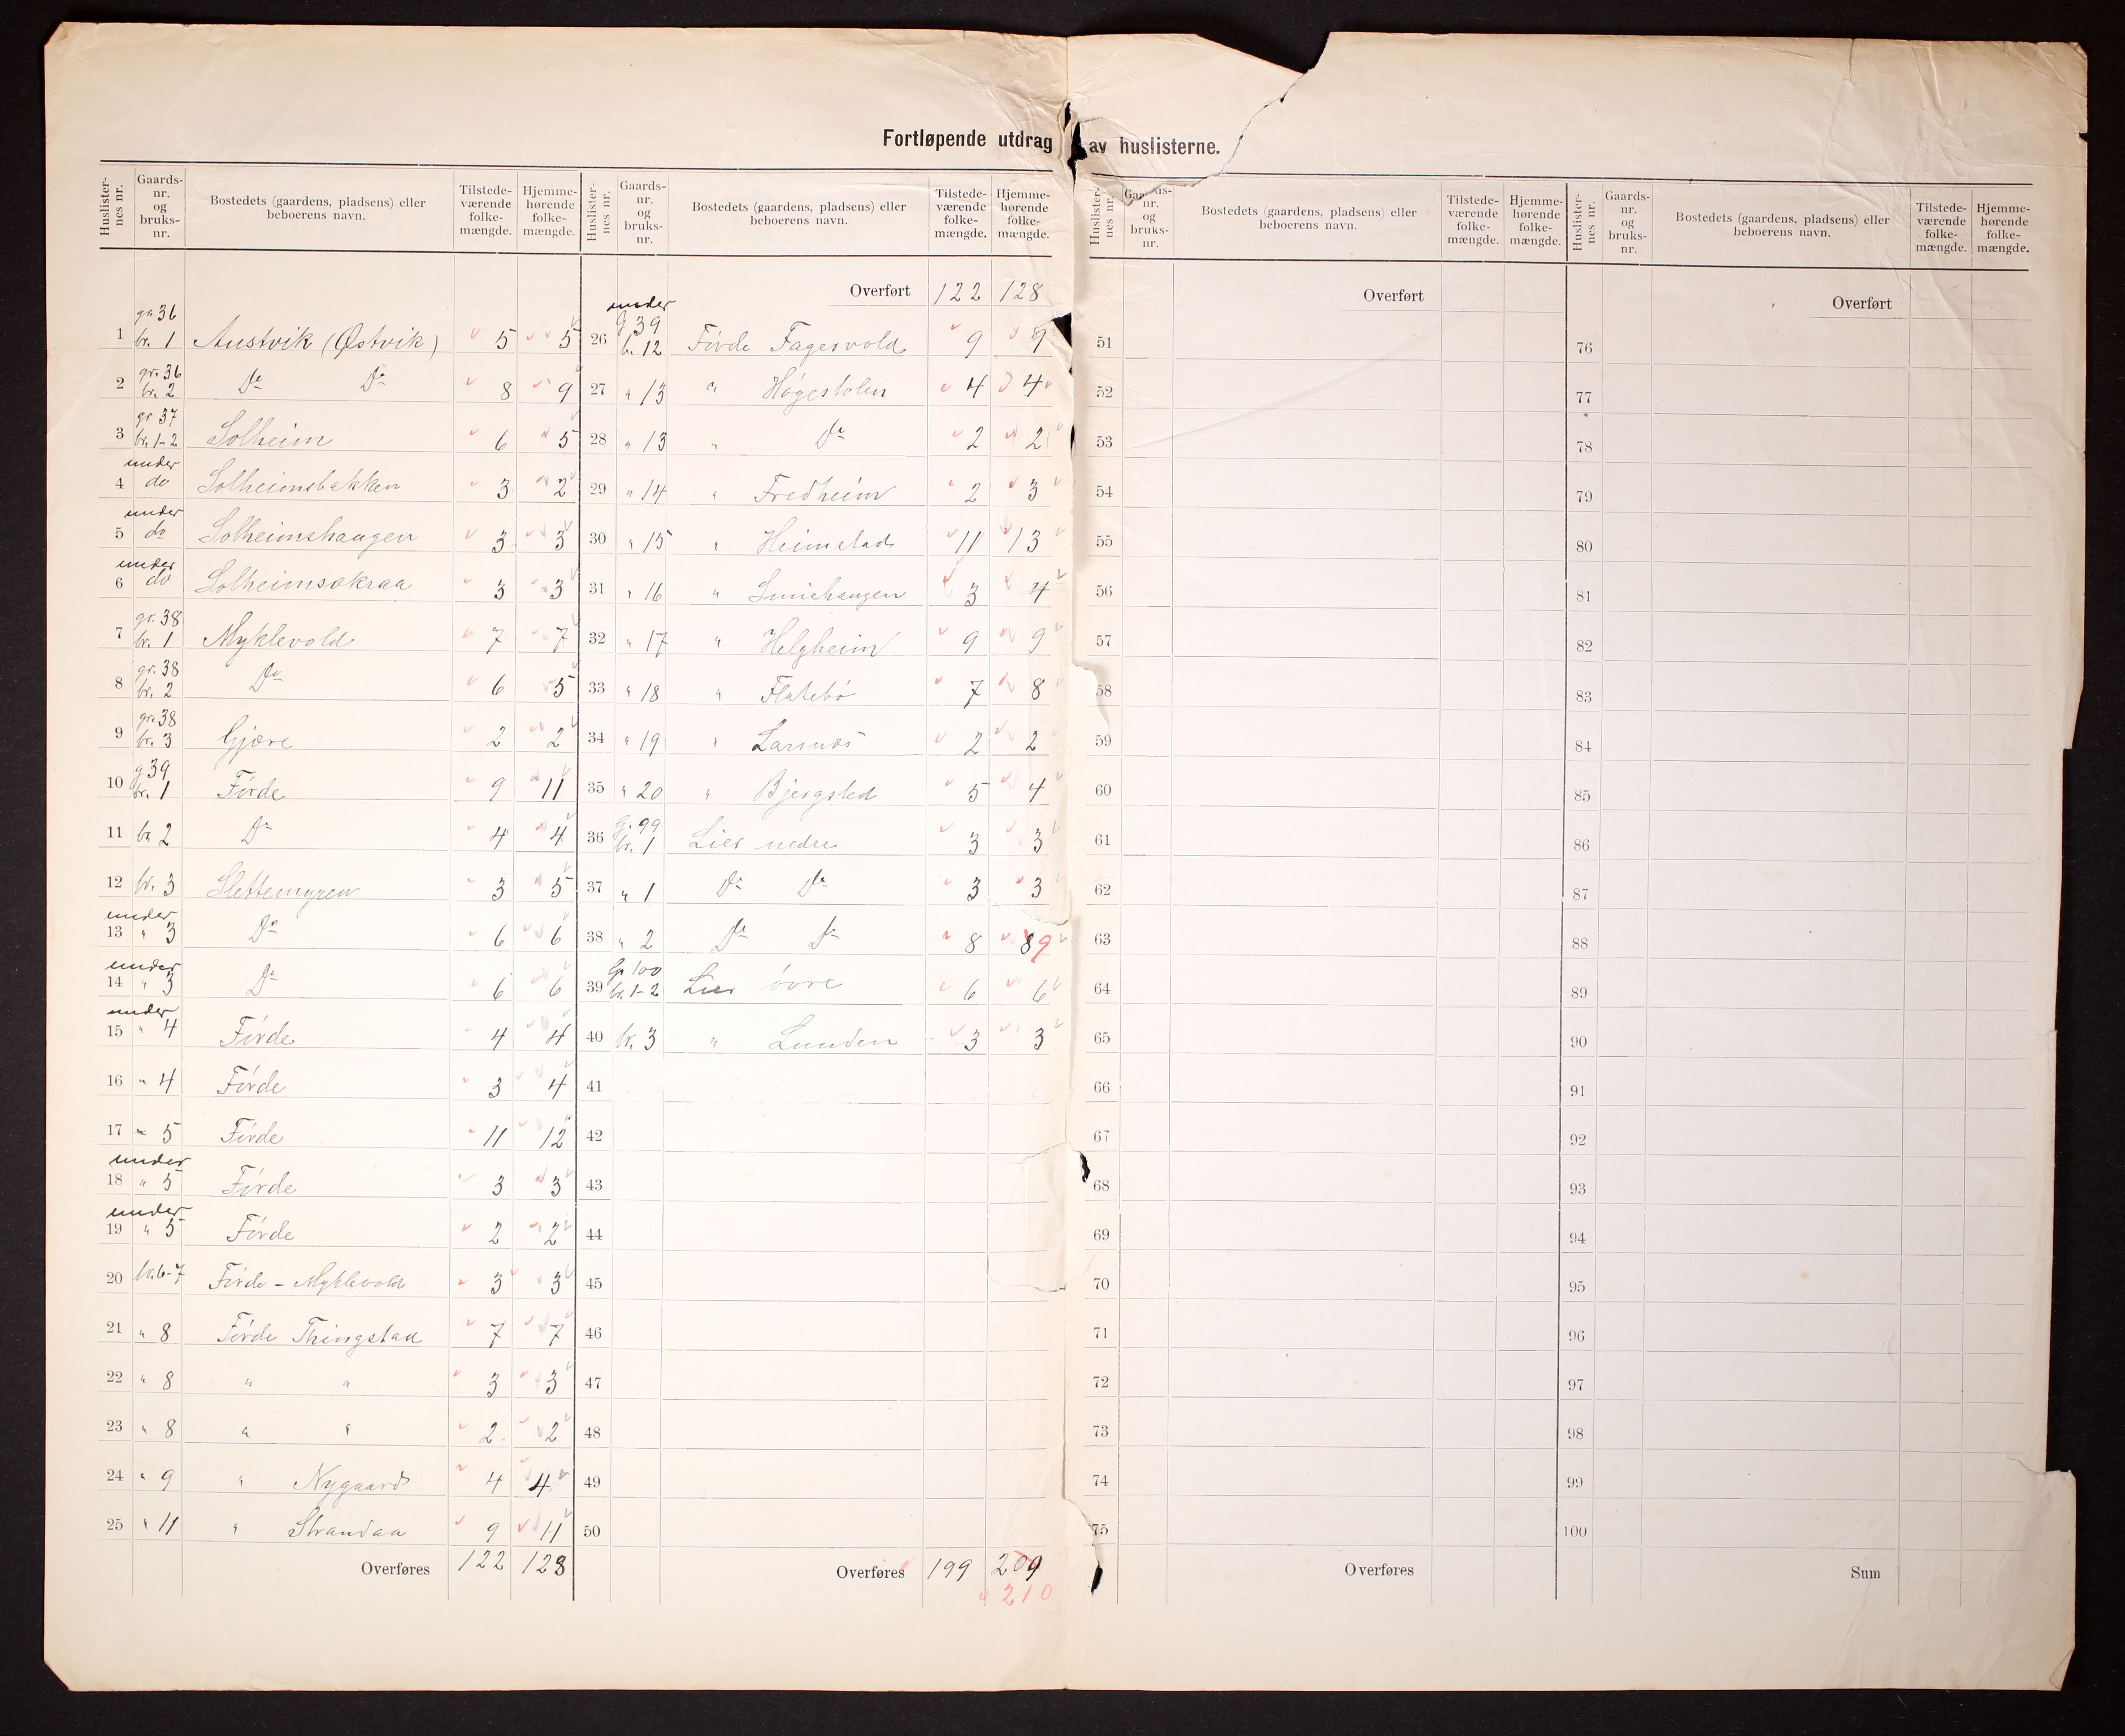 Fortløpende utdrag av huslisterne.
Huslister-nes nr. Gaards-nr. og bruks-nr. Bostedets (gaardens, pladsens) eller beboerens navn. Tilstede-værende folke-mængde. Hjemme-hørende folke-mængde.
1 gr. 36 br. 1 Austvik (Østvik) 5 5
2 gr. 36 br. 2 Do Do 8 9
3 gr 37 br. 1-2 Solheim 6 5
4 under do Solheimsbakken 3 2
5 under do Solheimshaugen 3 3
6 under do Solheimsøkraa 3 3
7 gr. 38 br. 1 Myklevold 7 7
8 gr. 38 br. 2 Do 6 5
9 gr. 38 br. 3 Gjøre 2 2
10 g 39 br. 1 Førde 9 11
11 br 2 Do 4 4
12 br. 3 Slettemyren 3 5
13 under " 3 Do 6 6
14 under " 3 Do 6 6
15 under " 4 Førde 4 4
16 " 4 Førde 3 4
17 " 5 Førde 11 12
18 under " 5 Førde 3 3
19 under " 5 Førde 2 2
20 br. 6-7 Førde - Myklevold 3 3
21 " 8 Førde Thingstad 7 7
22 " 8 " " 3 3
23 " 8 " " 2 2
24 " 9 " Nygaard 4 4
25 " 11 " Strandaa 9 11
Overføres 122 128
Huslister-nes nr. Gaards-nr. og bruks-nr. Bostedets (gaardens, pladsens) eller beboerens navn. Tilstede-værende folke-mængde. Hjemme-hørende folke-mængde.
Overført 122 128
26 under g 39 b. 12 Førde Fagervold 9 9
27 " 13 " Høgestolen 4 4
28 " 13 " Do 2 2
29 " 14 " Fredheim 2 3
30 " 15 " Heimstad 11 13
31 " 16 " Smiehaugen 3 4
32 " 17 " Helgheim 9 9
33 " 18 " Flatebø 7 8
34 " 19 " Larsnæs 2 2
35 " 20 " Bjergsted 5 4
36 G. 99 br. 1 Lier nedre 3 3
37 " 1 Do Do 3 3
38 " 2 Do Do 8 8 9
39 Gr 100 br. 1-2 Lier øvre 6 6
40 br. 3 " Lunden 3 3
41
42
43
44
45
46
47
48
49
50
Overføres 199 209
210
Huslister-nes nr. Gaards-nr. og bruks-nr. Bostedets (gaardens, pladsens) eller beboerens navn. Tilstede-værende folke-mængde. Hjemme-hørende folke-mængde.
Overført
51
52
53
54
55
56
57
58
59
60
61
62
63
64
65
66
67
68
69
70
71
72
73
74
75
Overføres
Huslister-nes nr. Gaards-nr. og bruks-nr. Bostedets (gaardens, pladsens) eller beboerens navn. Tilstede-værende folke-mængde. Hjemme-hørende folke-mængde.
Overført
76
77
78
79
80
81
82
83
84
85
86
87
88
89
90
91
92
93
94
95
96
97
98
99
100
Sum